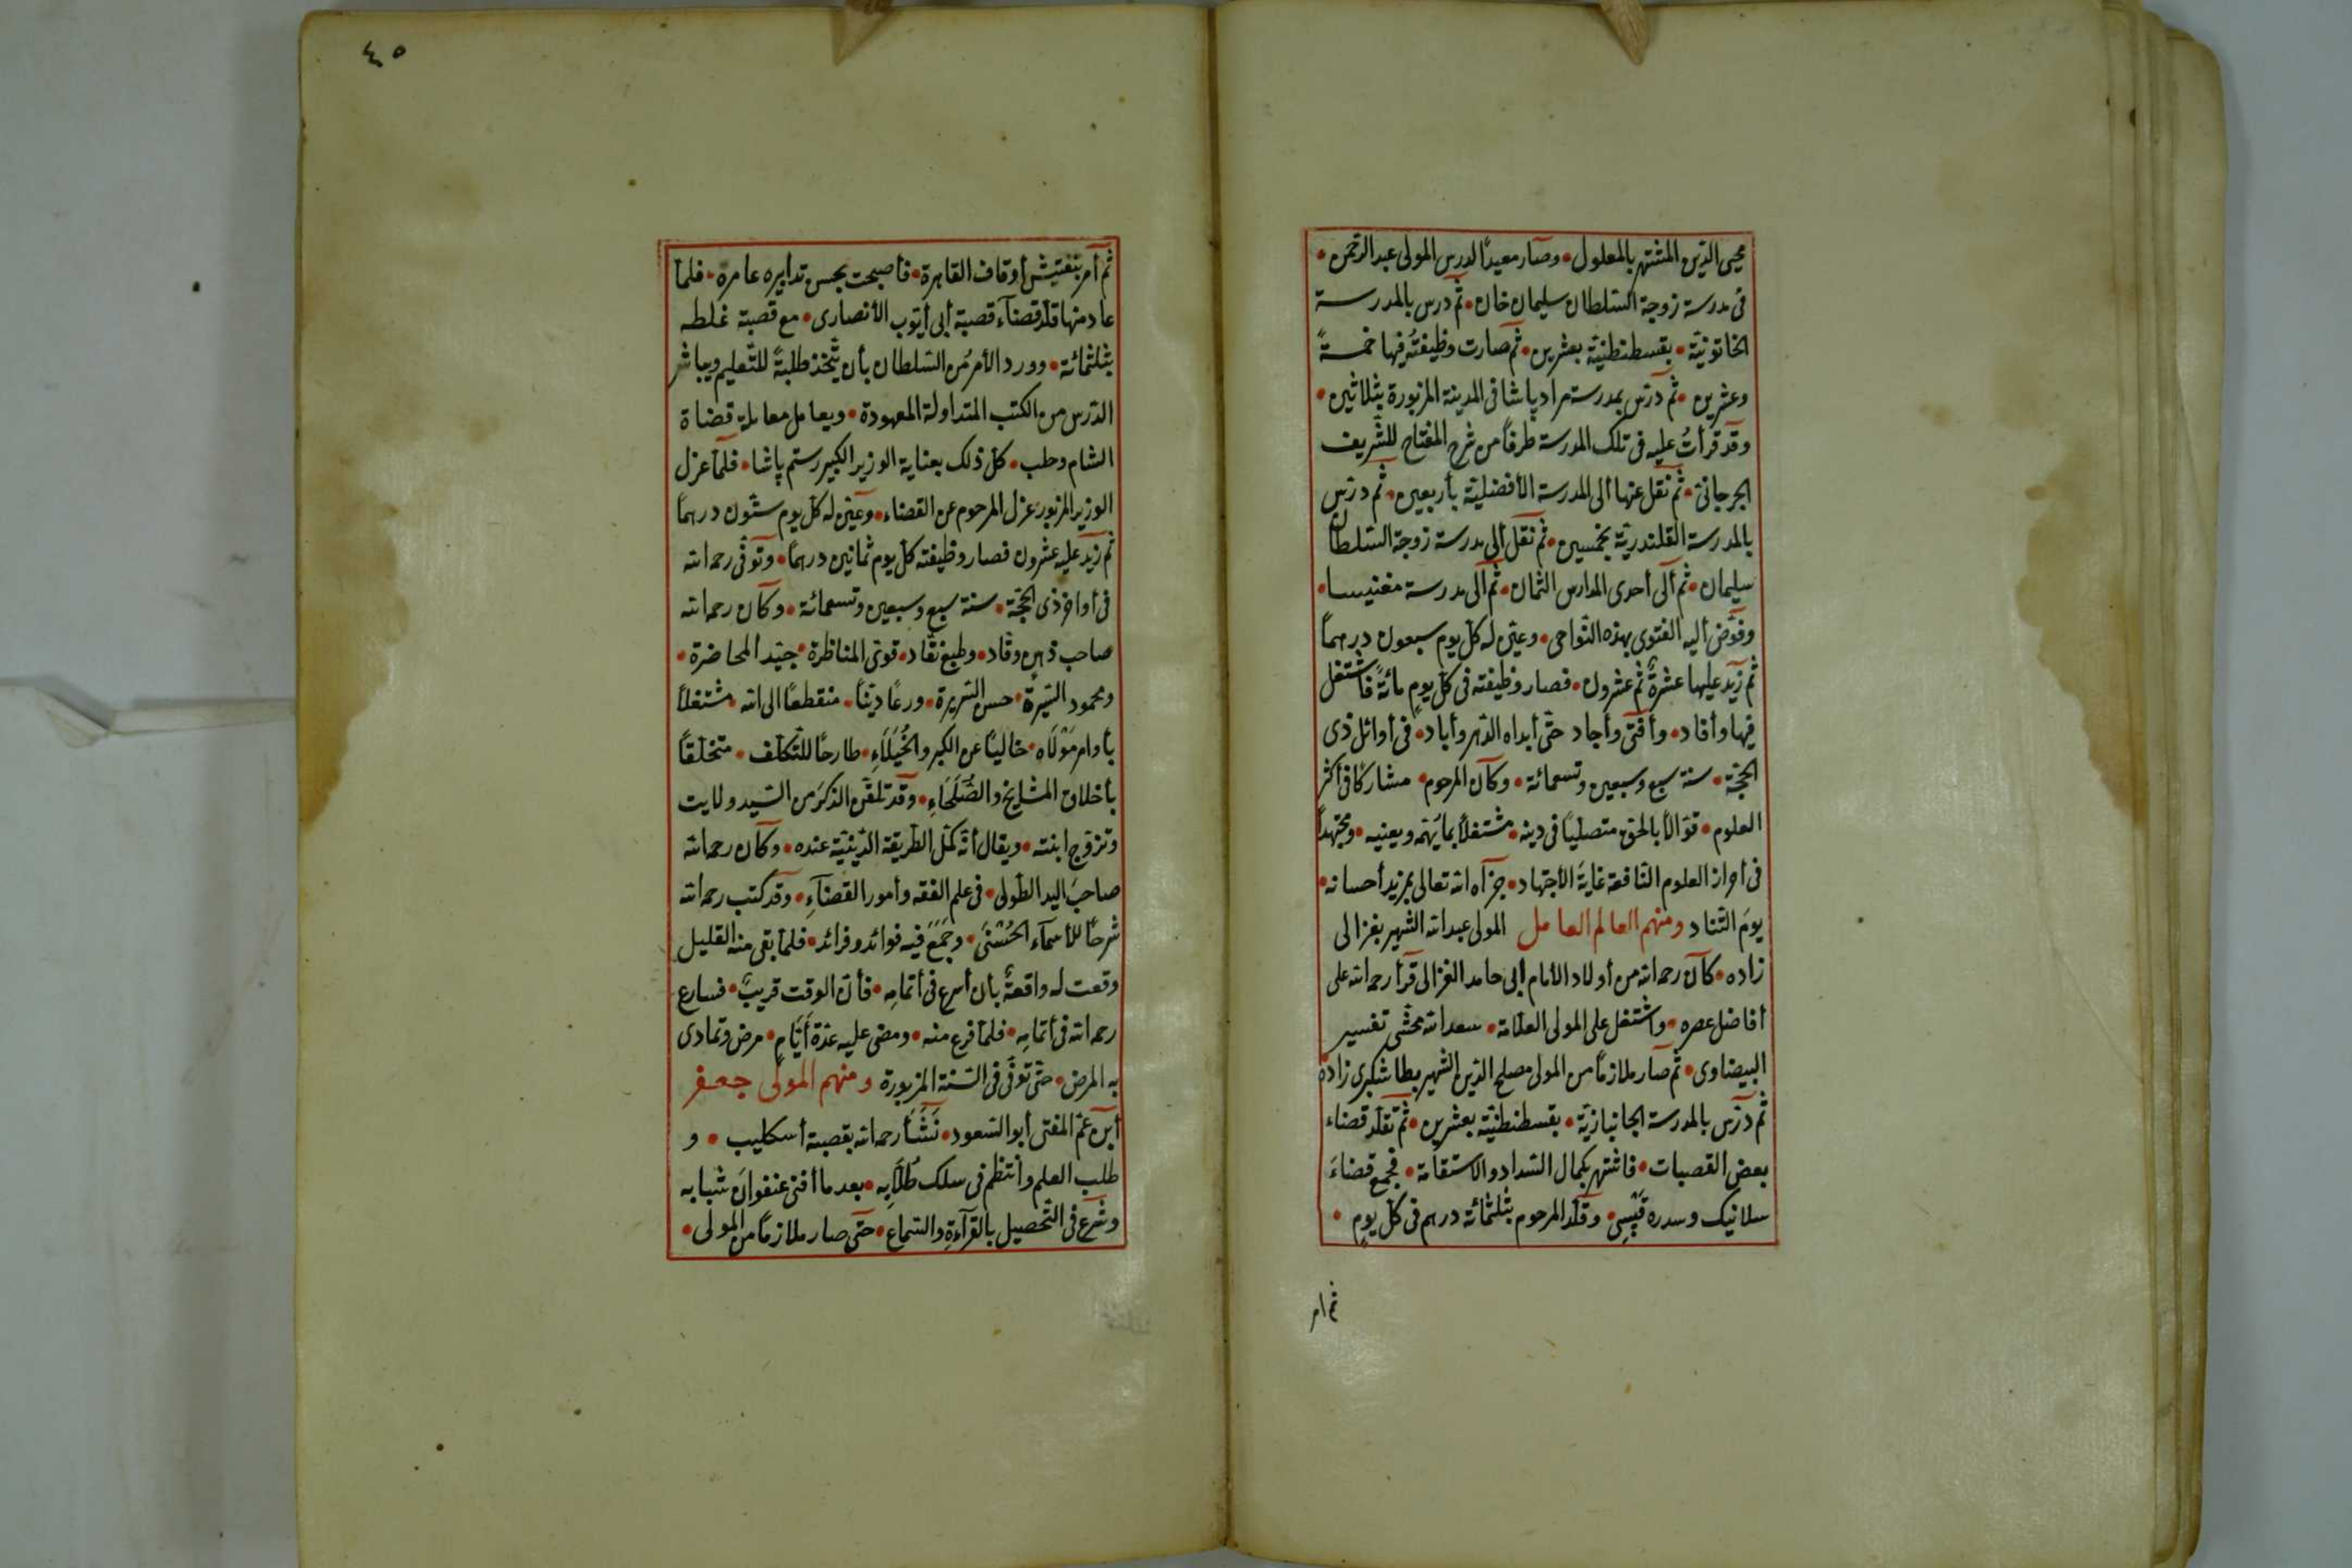 محيى الدين المشتهر بالمعلول • وصار معيدًا لدرس المولى عبد الرحمن •
فى مدرسة زوجة السلطان سليمان خان • ثم درس بالمدرسة
الخاتونية • بقسطنطنية بعشرين • ثم صارت وظيفتُه فيها خمسةً
وعشرين • ثم درّس بمدرسة مراد پاشا فى المدينة المزبورة بثلاثين •
وقد قرأتُ عليه فى تلك المدرسة طرفًا من شرح المفتاح للشريف
الجرجانىّ • ثم نقل عنها ألى المدرسة الأفضليّة بأربعين • ثم درّس
بالمدرسة القلندريّة بخمسين • ثم نقل ألى مدرسة زوجة السلطان
سليمان • ثم ألى أحدى المدارس الثمان • ثم ألى مدرسة مغنيسا •
وفوّض أليه الفتوى بهذه النّواحى • وعيّن له كل يوم سبعون درهمًا
ثم زيد عليها عشرةٌ ثم عشرون • فصار وظيفته فى كل يومٍ مائةً فاشتغل
فيها وأفاد • وأفتى وأجاد حتّى أبداه الدّهر وأباد • فى أوائل ذى
الحجّة • سنة سبع وسبعين وتسعمائة • وكان المرحوم • مشاركًا فى أكثر
العلوم • قوّالًا بالحق متصلّبًا فى دينه • مشتغلًا بما يَهمّه ويعنيه • ومجتهداً
فى أحراز العلوم النّافعة غايةَ الأجتهاد • جزاه الله تعالى بمزيد أحسانه •
يومَ التّناد ومنهم العالم العامل المولى عبد الله الشهير بغزالى
زاده • كان رحمه الله من أولاد الأمام أبى حامد الغزالى قرأ رحمه الله على
أفاضل عصره • واشتغل على المولى العلّامة • سعد الله محشّى تفسير
البيضاوى • ثم صار ملازمًا من المولى مصلح الدّين الشهير بطاشكبرى زاده
ثم درّس بالمدرسة الجانبازيّة • بقسطنطنيّة بعشرين • ثم تقلّد قضاء
بعض القصبات • فاشتهر بكمال السّداد والاستقامة • فجمع قضاءَ
سلانيك وسدره قپسى • وقلّد المرحوم بثلثمائة درهم فى كل يومٍ •
ثم امر
٤٥
ثم أمر بتفتيش أوقاف القاهرة • فأصبحت بحسن تدابيره عامرة • فلمّا
عاد منها قلّد قضاء قصبة أبى أيّوب الأنصارى • مع قصبة غلطه
بثلثمائة • وورد الأمر من السّلطان بأن يتّخذ طلبةً للتّعليم ويباشر
الدّرس من الكتب المتداولة المعهودة • ويعامل معاملة قضاة
الشام وحلب • كل ذلك بعناية الوزير الكبير رستم پاشا • فلمّا عزل
الوزير المزبور عزل المرحوم عن القضاء • وعيّن له كل يوم ستّون درهمًا
ثم زيد عليه عشرون فصار وظيفته كل يوم ثمانين درهمًا • وتوفّى رحمه الله
فى أواخر ذى الحجّة • سنة سبع وسبعين وتسعمائة • وكان رحمه الله
صاحب ذهن وقّاد • وطبع نقّاد • قوىّ المناظرة • جيّد المحاضرة •
ومحمود السّيرة • حسن السّريرة • ورعًا ديّنًا • منقطعًا الى الله • مشتغلًا
بأوامر مَوْلَاه • خاليًا عن الكبر والخُيَلَاءِ • طارحًا للتّكلّف • متخلّقًا
بأخلاق المشايخ والصُّلَحَاءِ • وقد تلقّن الذكرَ من السّيد ولايت
وتزوّج ابنته • ويقال أنّه كمّل الطّريقة الدّينيّة عنده • وكان رحمه الله
صاحبَ اليد الطّولى • فى علم الفقه وأمور القضآءِ • وقد كتب رحمه الله
شرحًا للأسمآء الحُسْنَى • وجَمَعَ فيه فوائد وفرائد • فلمّا بقى منه القليل
وقعت له واقعةٌ بأن أسرع فى أتمامِه • فأنّ الوقت قريبٌ • فسارع
رحمه الله فى أتمامِه • فلمّا فرغ منه • ومضى عليه عدّة أيّامٍ • مرض وتمادى
به المرض • حتّى توفّى فى السّنة المزبورة ومنهم المولى جعفر
أبن عمّ المفتى أبو السّعود • نَشَأَ رحمه الله بقصبة أسكليب • و
طلب العلم وانتظم فى سلك طُلّابِه • بعد ما أفنى عنفوانَ شبابه
وشرع فى التّحصيل بالقرآءةِ والسّماع • حتّى صار ملازمًا من المولى •